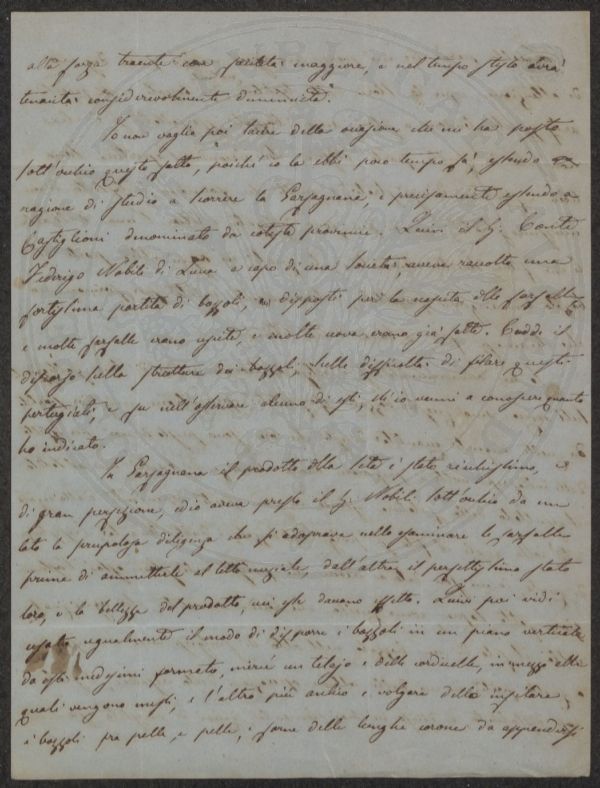 alla forza traente con facilità maggiore, e nel tempo stesso avrà
tenacità considerevolmente diminuita.
Io non voglio poi tacere della occasione che mi ha posto
sott'occhio questo fatto, poiché io la ebbi poco tempo fà, essendo
ragione di studio a scorrere la Garfagnana, e precisamente essendo a
Castiglioni denominato da coteste provincie. Quivi il Sg. Conte
Federigo Nobili di Lucca a capo di una società, aveva raccolto una
fortissima partita di bozzoli, disposti per la nascita delle farfalle
e molte farfalle erano uscite, e molte uova erano già fatte. Cadde il
discorso sulla struttura dei bozzoli, sulla difficoltà di filare questi
pertugiati, e fu nell'osservare alcuno di essi, ch'io venni a conoscere quanto
ho indicato.
In Garfagnana il prodotto della seta è stato ricchissimo, e
di gran perfezione, ed io aveva presso il Sg. Nobili sott'occhio da un
lato la scrupolosa diligenza che si adoprava nello esaminare le farfalle
prima di ammetterle al letto nuziale, dall'altra il perfettissimo stato
loro, e la bellezza del prodotto, che esse davano. Quivi poi vidi
usato egualmente il modo di disporre i bozzoli in un piano verticale
da essi medesimi formato, mercè un telajo e delle cordicelle, in mezzo alle
quali vengono messi, e l'altro più antico e volgare della infilare
i bozzoli fra pelle, e pelle, e farne delle lunghe corone da appendersi